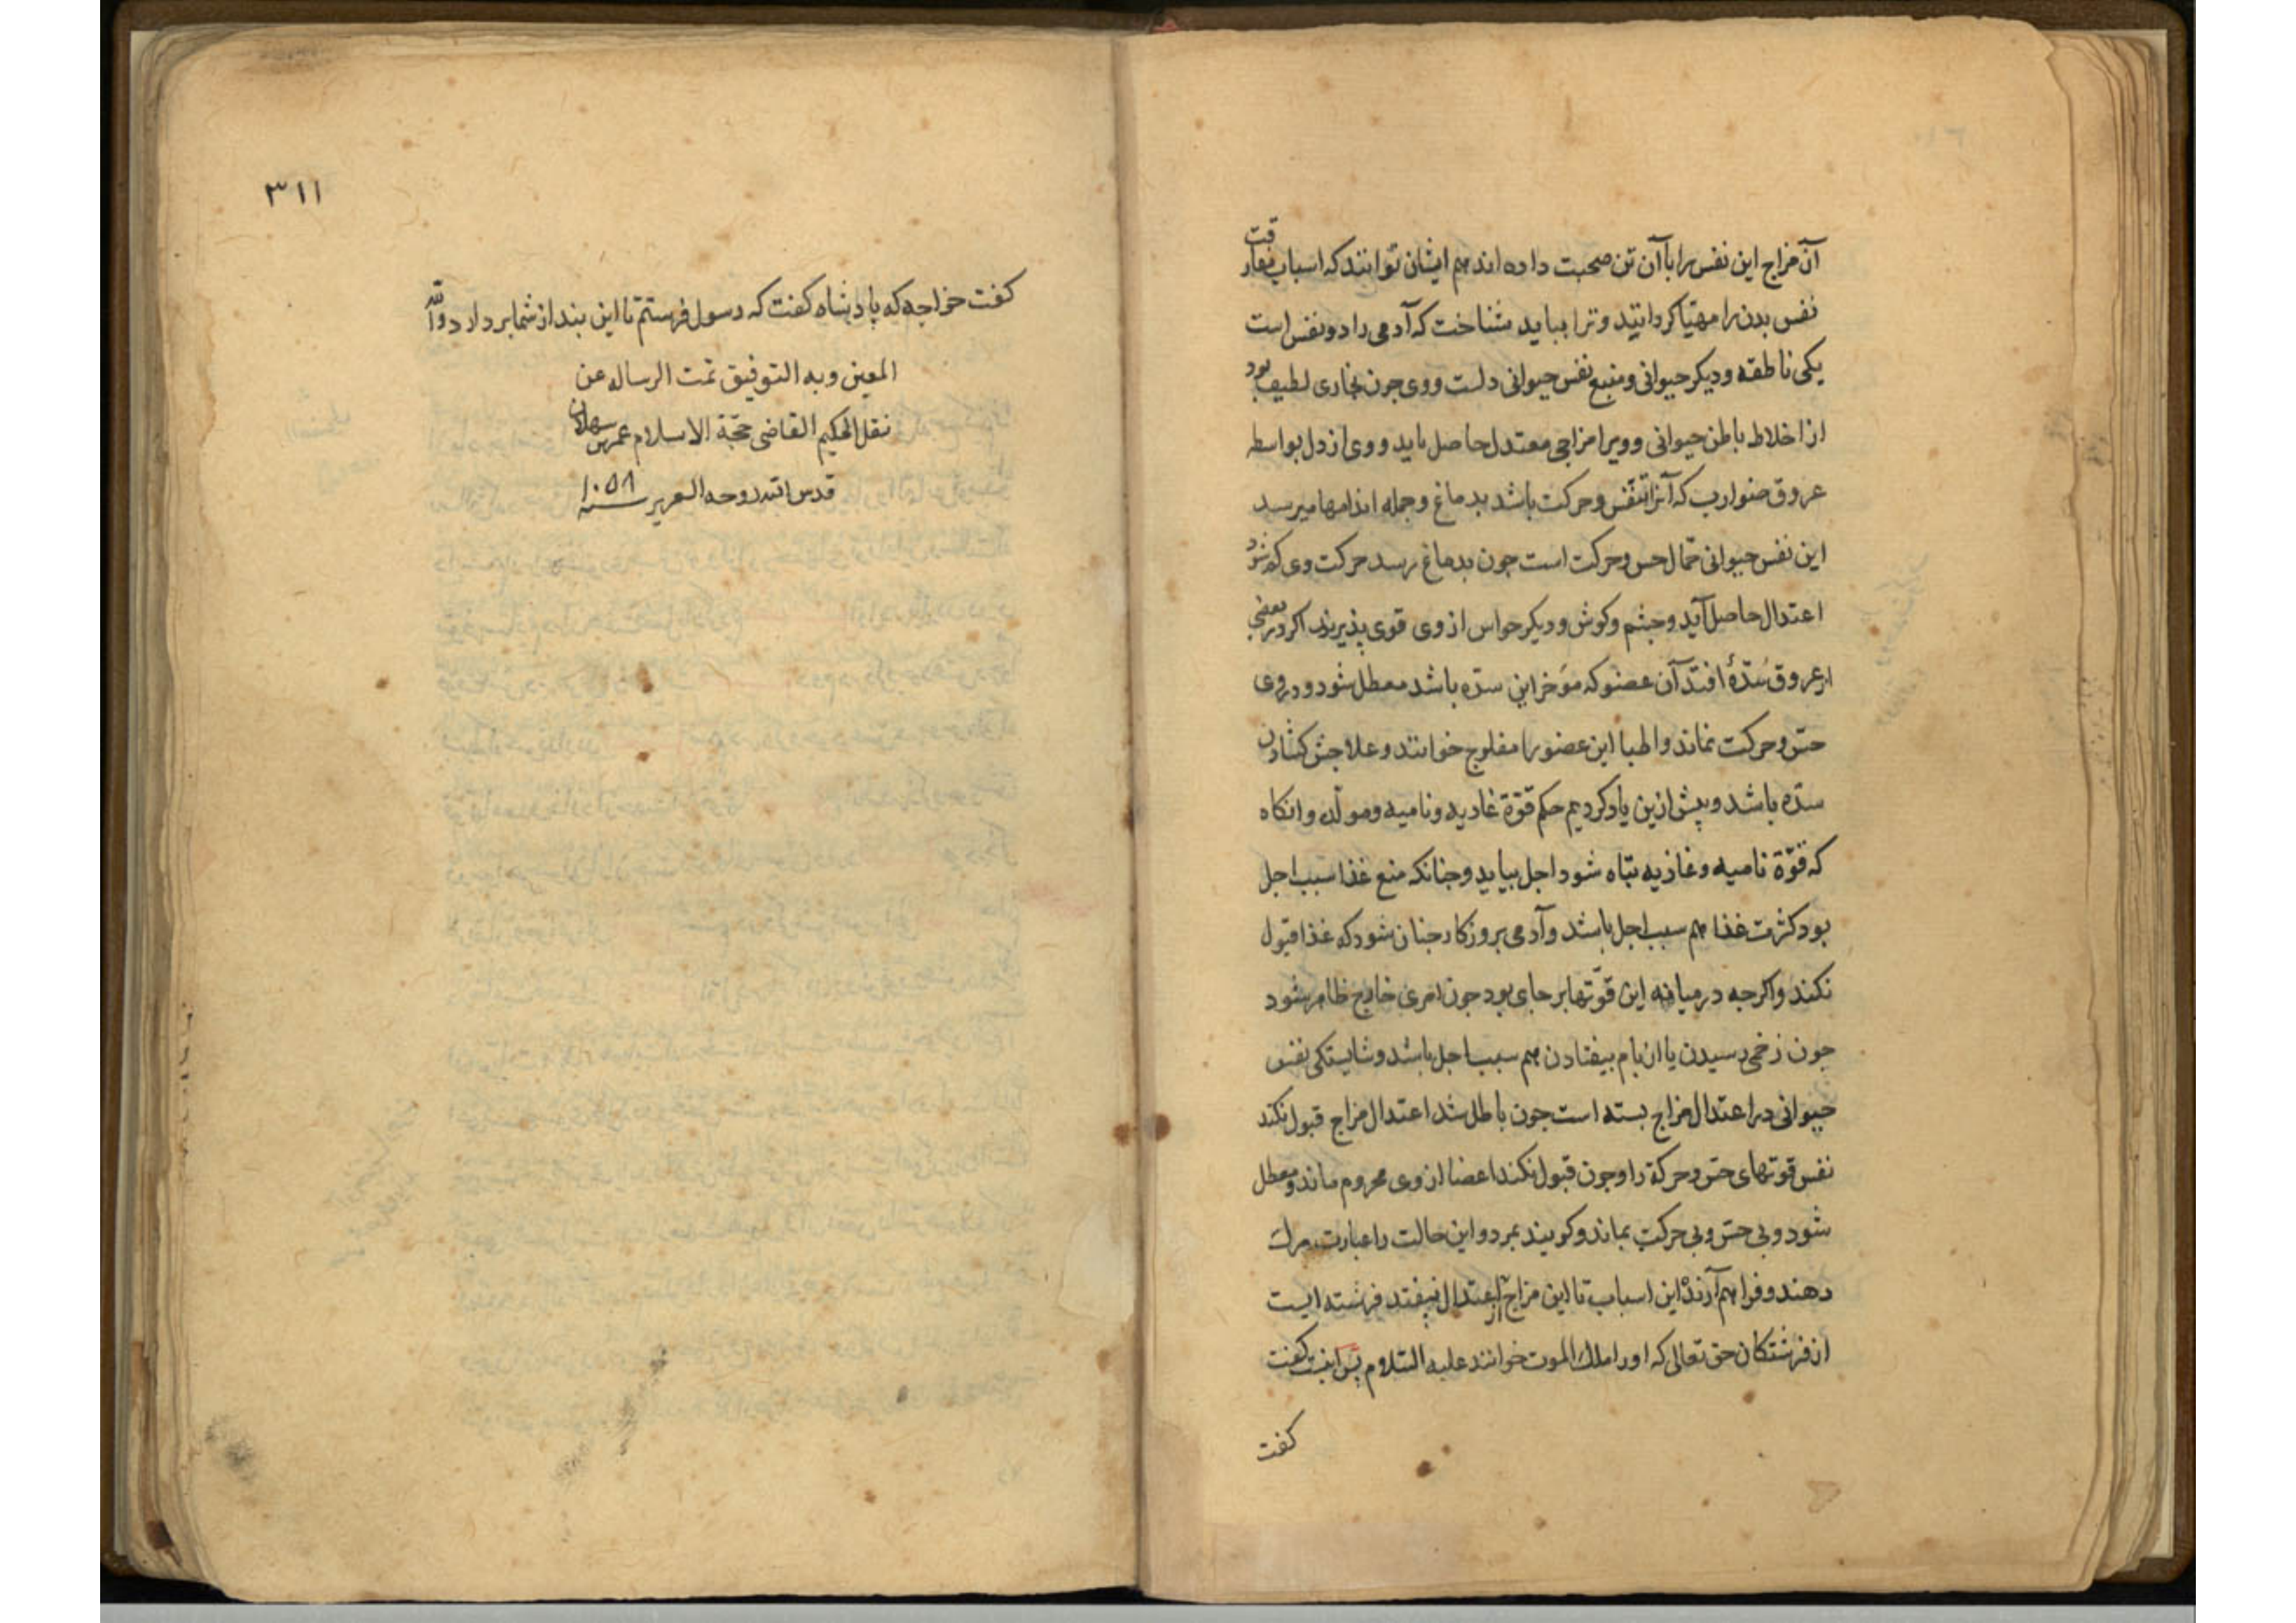 آن مزاج این نفس را با آن تن صحبت داده اند هم ایشان توانند که اسباب مفارقت
نفس بدن را مهیّا کردانید و ترا بباید شناخت که آدمی را دو نفس است
یکی ناطقه و دیکر حیوانی و منبع نفس حیوانی دلست و وی جون بخاری لطیف بود
از اخلاط باطن حیوانی و ویرا مزاجی معتدل حاصل باید و وی از دل بواسطه
عروق ضوارب که آنرا تنفّس و حرکت باشد بدماغ و جمله اندامها میرسد
این نفس حیوانی حمّال حس و حرکت است جون بدماغ رسد حرکت وی کم شود
اعتدال حاصل آید و جشم و کوش و دیکر حواس از وی قوی پذیرند اکر در بعضی
از عروق سُدّهٔ افتد آن عضو که مؤخر این سدّه باشد معطل شود و در وی
حسّ و حرکت نماند و اطبا این عضو را مفلوج خوانند و علاجش کشادن
سدّه باشد و پیش ازین یاد کردیم حکم قوّة غادیه و نامیه و مولّده و انکاه
که قوّة نامیه و غاذیه تباه شود اجل بیاید و جنانکه منع غذا سبب اجل
بود کثرت غذا هم سبب اجل باشد و آدمی بروزکار جنان شود که غذا قبول
نکند و اکرجه در میانه این قوّتها بر جای بود جون امری خارج ظاهر شود
جون زخمی رسیدن یا از بام بیفتادن هم سبب اجل باشد و شایستکی نفس
حیوانی در اعتدال مزاج بسته است جون باطل شد اعتدال مزاج قبول نکند
نفس قوتهای حسّ و حرکة را و جون قبول نکند اعضا از وی محروم ماند و معطل
شود و بی حسّ و بی حرکت بماند و کویند بمرد و این حالت را عبارت مرک
دهند و فراهم آرندهٔ این اسباب تا این مزاج از اعتدال نیفتد فرشته ایست
از فرشتکان حق تعالی که او را ملک الموت خوانند علیه السّلام پس اینت کفت
کفت
٣١١
کفت خواجه که پادشاه کفت که رسول فرستم تا این بند از شما بردارد والله
المعین وبه التوفیق تمت الرساله عن
نقل الحکیم القاضی حجّة الاسلام عمر بن سهلان
قدس الله روحه العزیز سنه ١٠٥٨